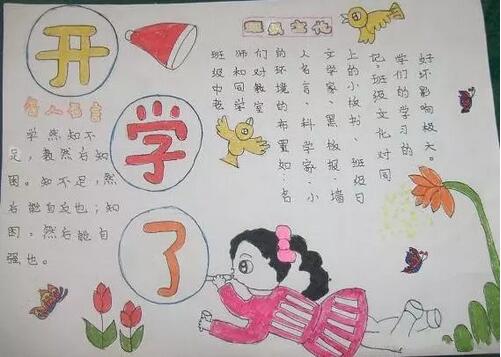 开
学
了
名人名言
学然知不
足，教然右知
困。知不足，然
右能自反也；知
困。然右能自
强也。
班级文化
班级中老
师和同学
们对教室
的环境的布置如：名
人名言、科学家、小
文学家、黑板报、墙
上的小板书、班级日
记。班级文化对同
学们的学习的
好坏影响极大。